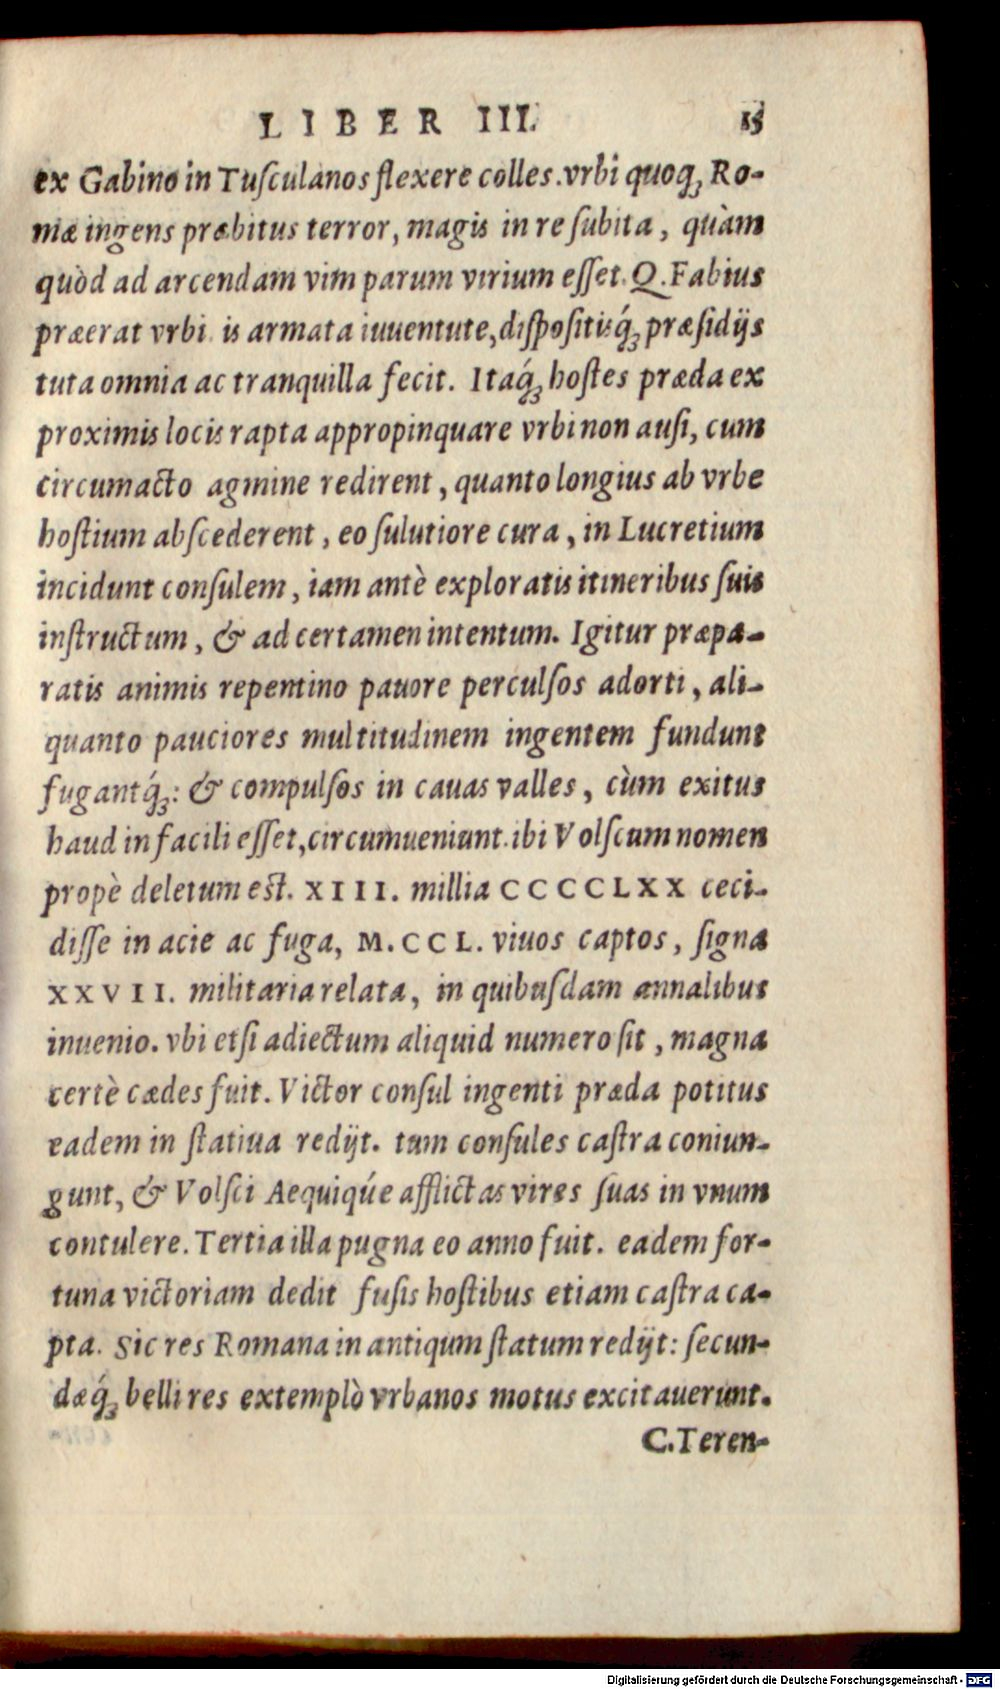 LIBER III. 15
ex Gabino in Tuſculanos flexere colles. vrbi quoq́ꝫ Ro-
mæ ingens præbitus terror, magis in re ſubita, quàm
quòd ad arcendam vim parum virium eſſet. Q. Fabius
præerat vrbi. is armata iuuentute, diſpoſitisq́ꝫ præſidijs
tuta omnia ac tranquilla fecit. Itaq́ꝫ hoſtes præda ex
proximis locis rapta appropinquare vrbi non auſi, cum
circumacto agmine redirent, quanto longius ab vrbe
hoſtium abſcederent, eo ſulutiore cura, in Lucretium
incidunt conſulem, iam antè exploratis itineribus ſuis
inſtructum, & ad certamen intentum. Igitur præpa-
ratis animis repentino pauore perculſos adorti, ali-
quanto pauciores multitudinem ingentem fundunt
fugantq́ꝫ: & compulſos in cauas valles, cùm exitus
haud in facili eſſet, circumueniunt. ibi Volſcum nomen
propè deletum eſt. XIII. millia CCCCLXX ceci-
diſſe in acie ac fuga, M.CCL. viuos captos, ſigna
XXVII. militaria relata, in quibuſdam annalibus
inuenio. vbi etſi adiectum aliquid numero ſit, magna
certè cædes fuit. Victor conſul ingenti præda potitus
eadem in ſtatiua redijt. tum conſules caſtra coniun-
gunt, & Volſci Aequiqúe afflictas vires ſuas in vnum
contulere. Tertia illa pugna eo anno fuit. eadem for-
tuna victoriam dedit fuſis hoſtibus etiam caſtra ca-
pta. Sic res Romana in antiqum ſtatum redijt: ſecun-
dæq́ꝫ belli res extemplò vrbanos motus excitauerunt.
C. Teren-
Digitalisierung gefördert durch die Deutsche Forschungsgemeinschaft - DFG